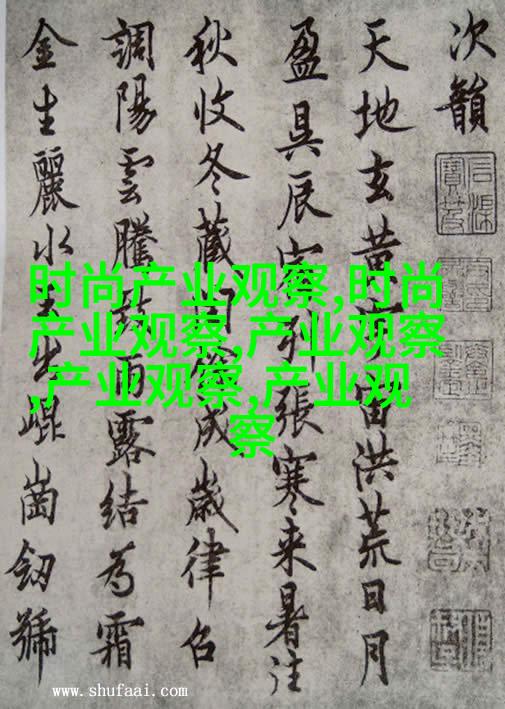 次韻
天地玄黄宇宙洪荒日月
盈昃辰宿列張寒来暑往
秋收冬蔵閏餘成歲律召
調陽雲騰致雨露結為霜
金生麗水玉出崐崗劒號
时尚产业观察,时尚
产业观察,产业观察
,产业观察,产业观
察
www.shufaai.com